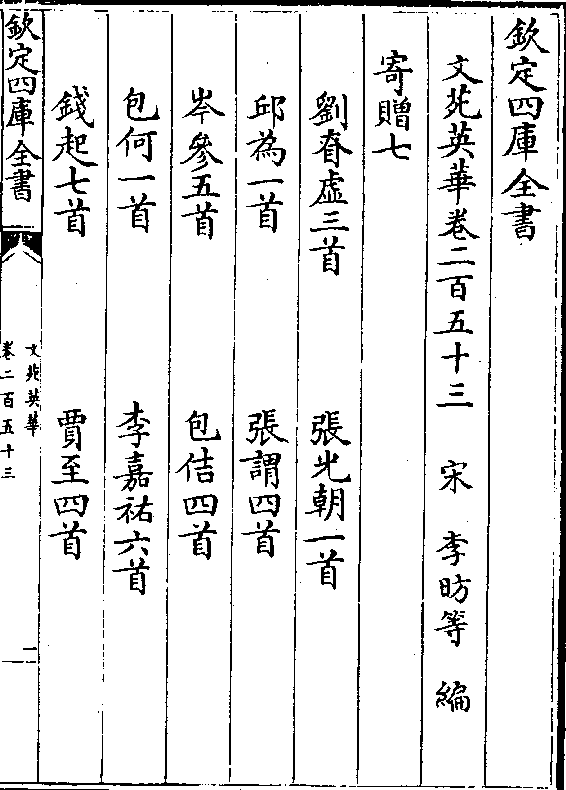 欽定四庫全書
文苑英華卷二百五十三 宋 李昉等 編
寄贈七
劉眘虛三首 張光朝一首
邱為一首 張謂四首
岑參五首 包佶四首
包何一首 李嘉祐六首
錢起七首 賈至四首
欽定四庫全書
文苑英華
卷二百五十三
一